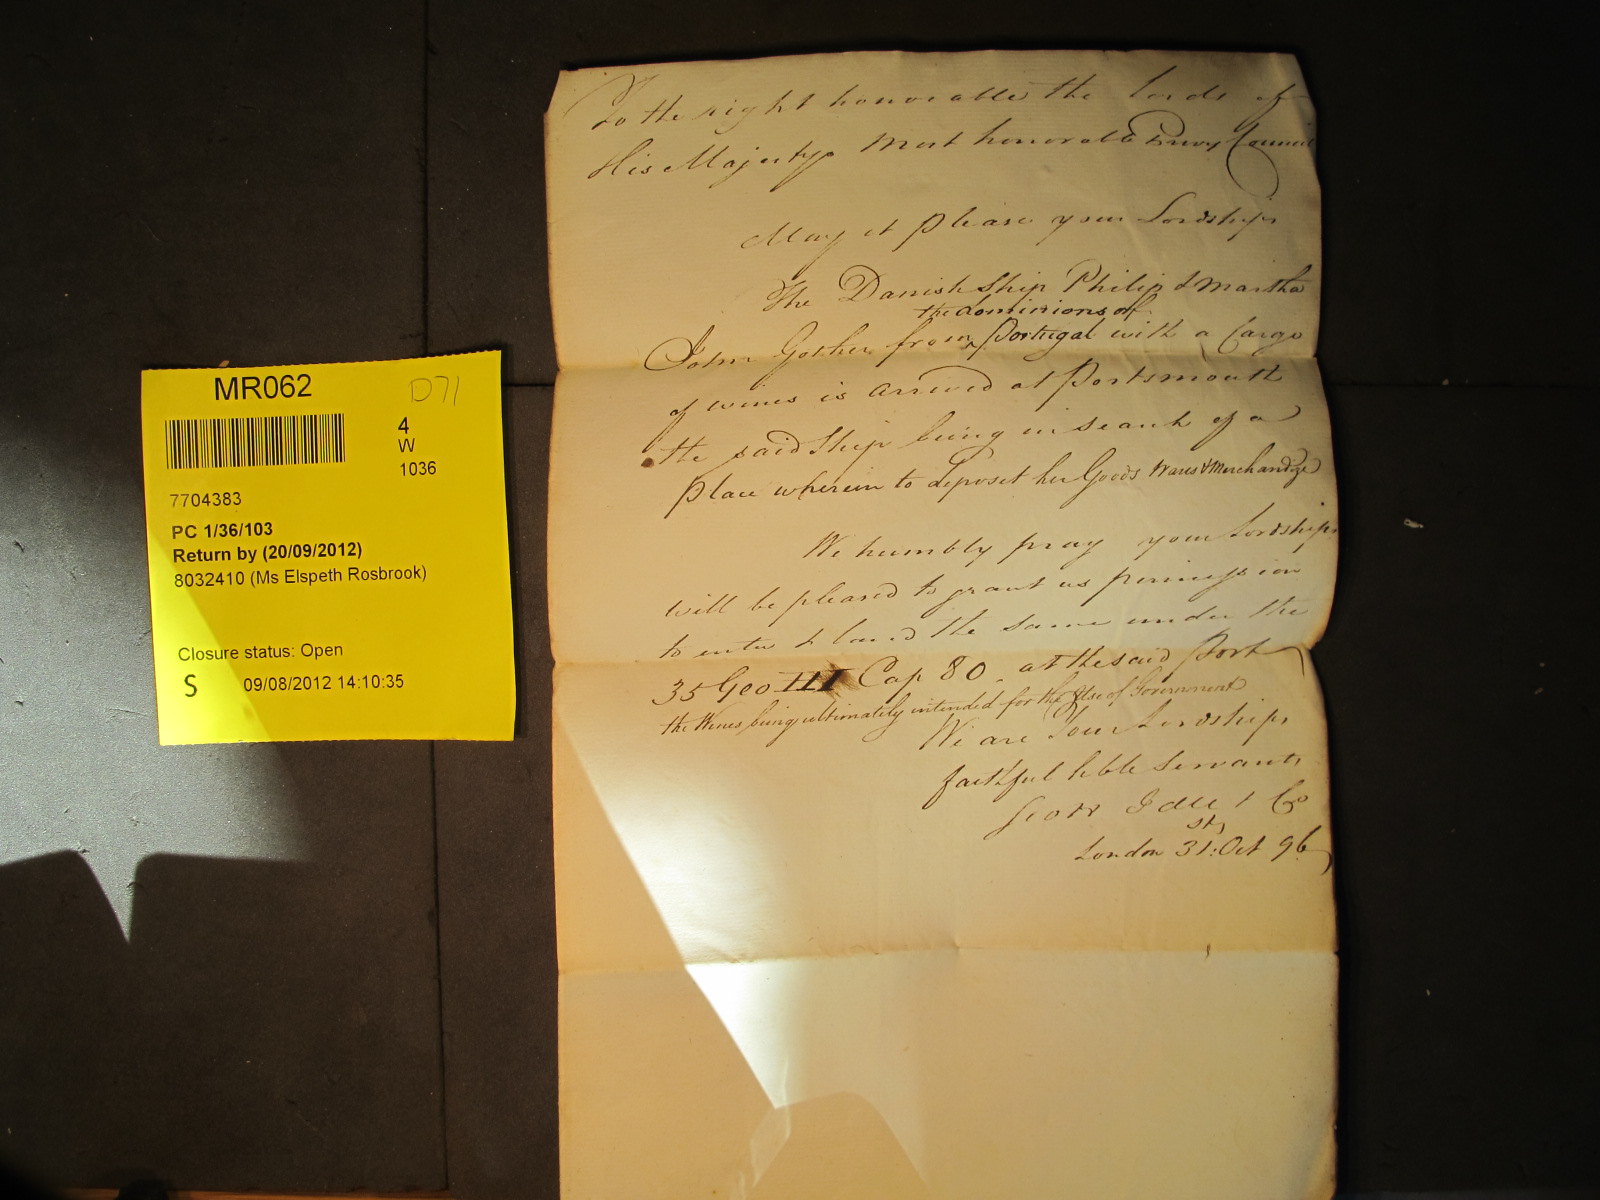 MR062
D71
4
W
1036
7704383
PC 1/36/103
Return by (20/09/2012)
8032410 (Ms Elspeth Rosbrook)
Closure status: Open
S 09/08/2012 14:10:35
To the right honorable the Lords of
His Majestys Most honorable Privy Council
May it please your Lordships
The Danish Ship Philip & Martha
the dominions of
John Gother from ^ Portugal with a Cargo
of wines is arrived at Portsmouth
the said Ship being in search of a
place wherein to deposit her Goods Wares & Merchandize
We humbly pray your Lordships
will be pleased to grant us permission
to enter & land the same under the
35 Geo III Cap 80 at the said Port
the Wines being ultimately intended for the Use of Government
We are Your Lordships
faithful hble Servants
Scott & Co
London 31st: Oct 96